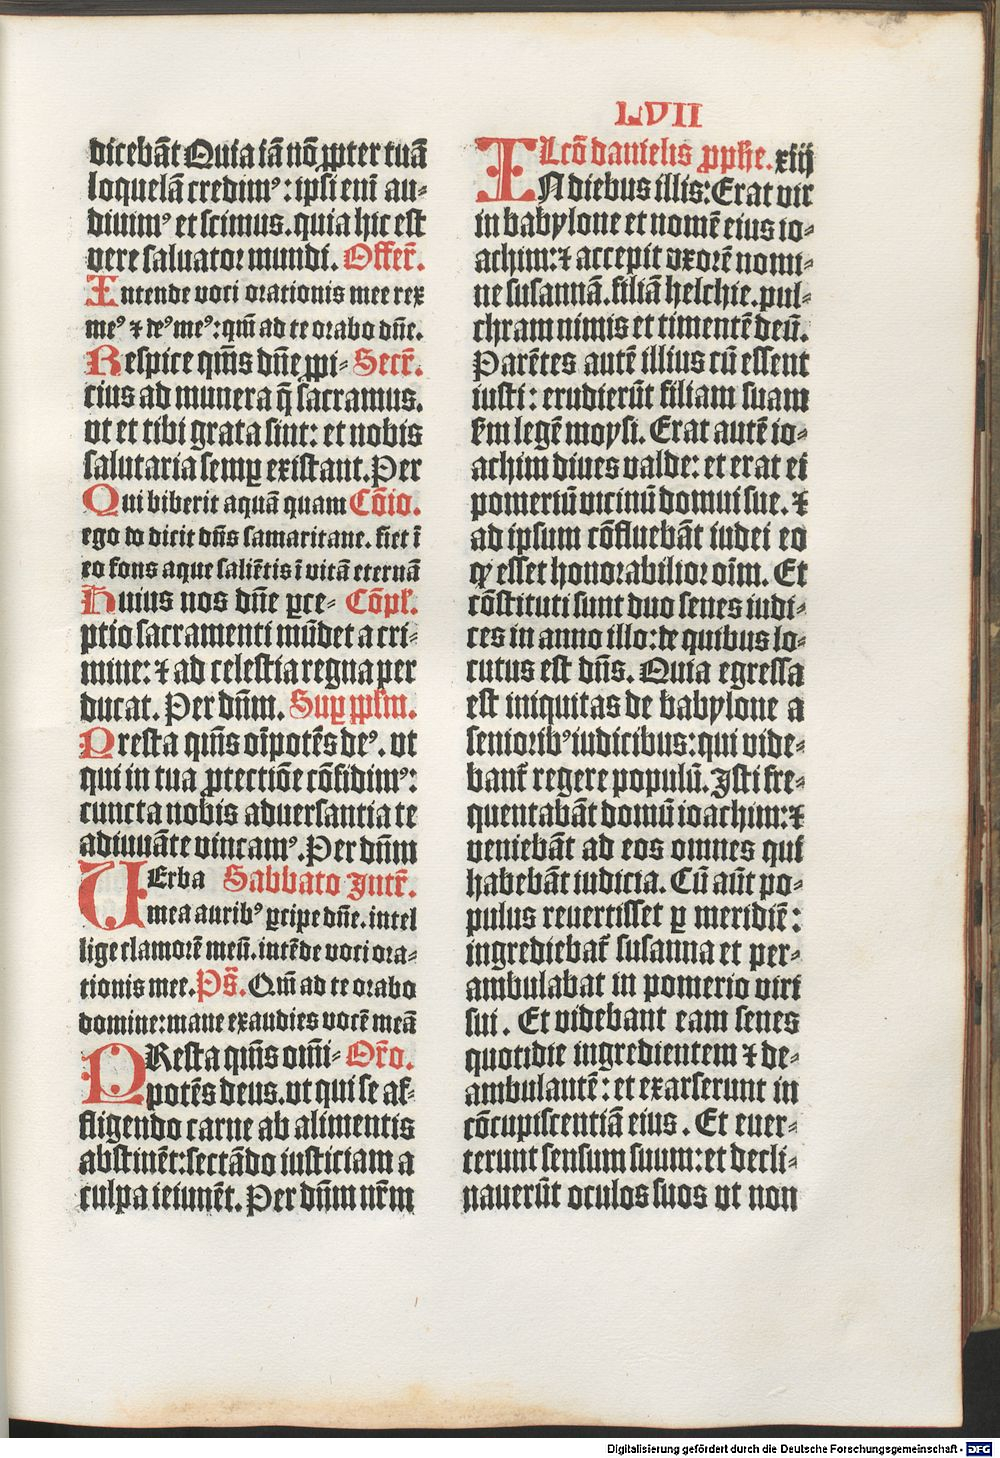 LVII
dicebāt Quia iā nō ꝓpter tuā
loquelā credimꝰ: ipsi eni au⸗
diuimꝰ et scimus. quia hic est
vere saluator mundi. Offer̄.
Intende voci orationis mee rex
meꝰ ⁊ deꝰ meꝰ: qm̄ ad te orabo dn̄e.
Respice qm̄s dn̄e ꝓpi⸗ Secr̄.
cius ad munera q̄ sacramus.
vt et tibi grata sint: et nobis
salutaria semꝑ existant. Per
Qui biberit aquā quam Cōio.
ego do dicit dn̄s samaritane. fiet ī
eo fons aque saliētis ī vitā eternā
Huius nos dn̄e ꝑce⸗ Cōpl̄.
ptio sacramenti mūdet a cri⸗
mine: ⁊ ad celestia regna per
ducat. Per dn̄m. Suꝑ pp̄lm.
Presta qm̄s oīpotēs deꝰ. vt
qui in tua ꝓtectiōe cōfidimꝰ:
cuncta nobis aduersantia te
adiuuāte vincamꝰ. Per dn̄m
VErba Sabbato Intr̄.
mea auribꝰ ꝑcipe dn̄e. intel
lige clamorē meū. intēde voci ora⸗
tionis mee. Ps̄. Qm̄ ad te orabo
domine: mane exaudies vocē meā
PResta qm̄s omī⸗ Or̄o.
potēs deus. vt qui se af⸗
fligendo carne ab alimentis
abstinēt: sectādo iusticiam a
culpa ieiunēt. Per dn̄m nr̄m
Lc̄o danielis ꝓph̄e. xiij
IN diebus illis: Erat vir
in babylone et nomē eius io⸗
achim: ⁊ accepit vxorē nomi⸗
ne susannā. filiā helchie. pul⸗
chram nimis et timentē deū.
Parētes autē illius cū essent
iusti: erudierūt filiam suam
s̄m legē moysi. Erat autē io⸗
achim diues valde: et erat ei
pomeriū vicinū domui sue. ⁊
ad ipsum cōfluebāt iudei eo
ꝙ esset honorabilior oīm. Et
cōstituti sunt duo senes iudi⸗
ces in anno illo: de quibus lo⸗
cutus est dn̄s. Quia egressa
est iniquitas de babylone a
senioribꝰ iudicibus: qui vide⸗
bant̄ regere populū. Isti fre⸗
quentabāt domū ioachim: ⁊
veniebāt ad eos omnes qui
habebāt iudicia. Cū aūt po⸗
pulus reuertisset ꝑ meridiē:
ingrediebat̄ susanna et per⸗
ambulabat in pomerio viri
sui. Et videbant eam senes
quotidie ingredientem ⁊ de⸗
ambulantē: et exarserunt in
cōcupiscentiā eius. Et euer⸗
terunt sensum suum: et decli⸗
nauerūt oculos suos vt non
Digitalisierung gefördert durch die Deutsche Forschungsgemeinschaft - DFG